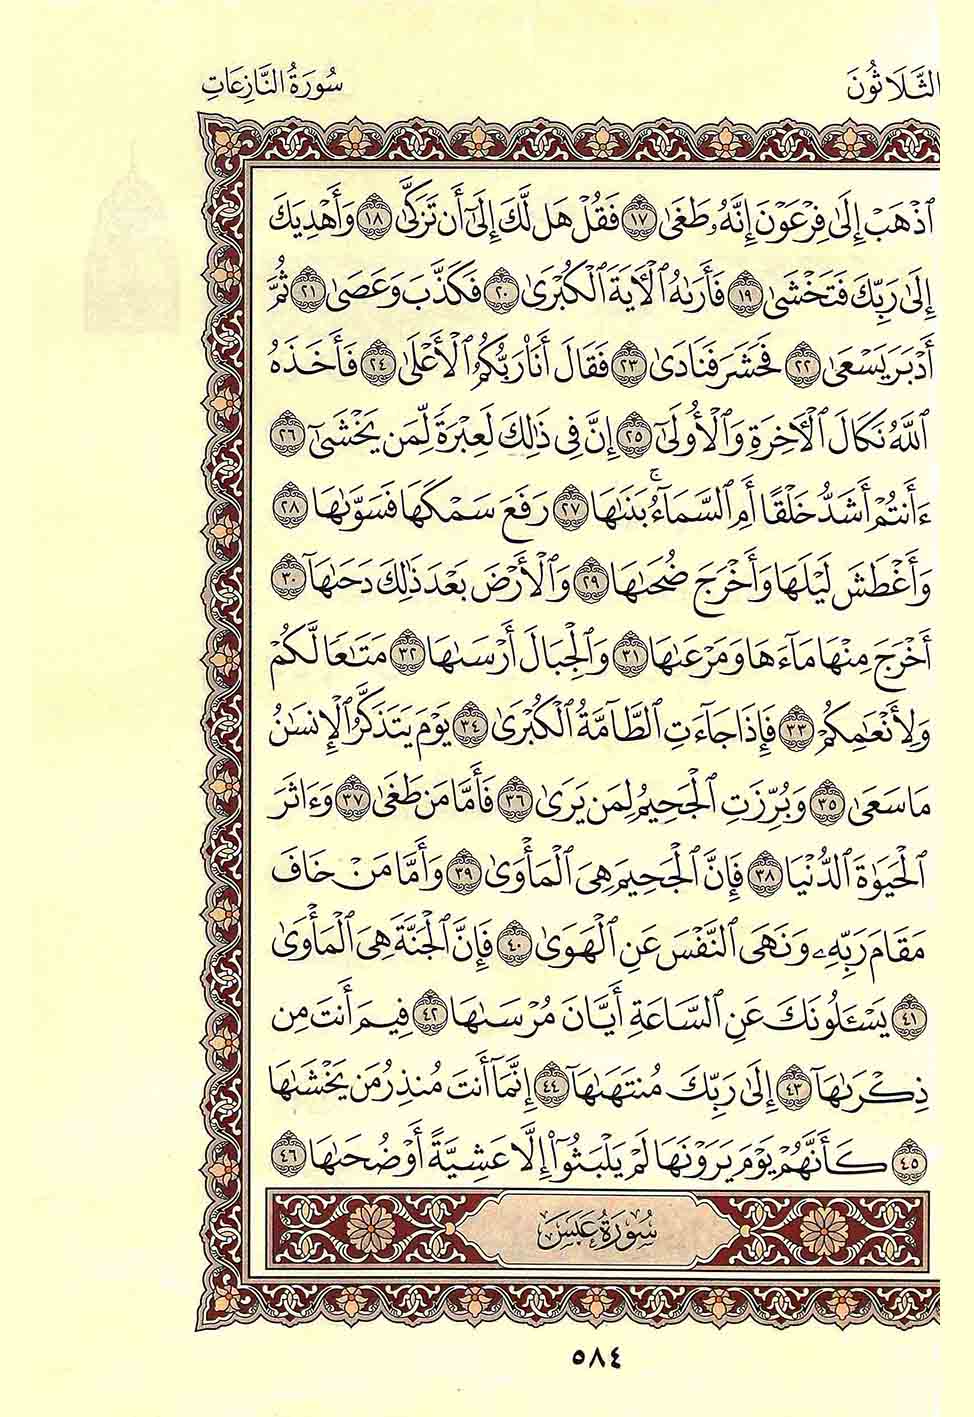 الثَّلَاثُونَ سُورَةُ النَّازِعَاتِ
ٱذۡهَبۡ إِلَىٰ فِرۡعَوۡنَ إِنَّهُۥ طَغَىٰ ١٧ فَقُلۡ هَل لَّكَ إِلَىٰٓ أَن تَزَكَّىٰ ١٨ وَأَهۡدِيَكَ
إِلَىٰ رَبِّكَ فَتَخۡشَىٰ ١٩ فَأَرَىٰهُ ٱلۡأٓيَةَ ٱلۡكُبۡرَىٰ ٢٠ فَكَذَّبَ وَعَصَىٰ ٢١ ثُمَّ
أَدۡبَرَ يَسۡعَىٰ ٢٢ فَحَشَرَ فَنَادَىٰ ٢٣ فَقَالَ أَنَا۠ رَبُّكُمُ ٱلۡأَعۡلَىٰ ٢٤ فَأَخَذَهُ
ٱللَّهُ نَكَالَ ٱلۡأٓخِرَةِ وَٱلۡأُولَىٰٓ ٢٥ إِنَّ فِي ذَٰلِكَ لَعِبۡرَةٗ لِّمَن يَخۡشَىٰٓ ٢٦
ءَأَنتُمۡ أَشَدُّ خَلۡقًا أَمِ ٱلسَّمَآءُۚ بَنَىٰهَا ٢٧ رَفَعَ سَمۡكَهَا فَسَوَّىٰهَا ٢٨
وَأَغۡطَشَ لَيۡلَهَا وَأَخۡرَجَ ضُحَىٰهَا ٢٩ وَٱلۡأَرۡضَ بَعۡدَ ذَٰلِكَ دَحَىٰهَآ ٣٠
أَخۡرَجَ مِنۡهَا مَآءَهَا وَمَرۡعَىٰهَا ٣١ وَٱلۡجِبَالَ أَرۡسَىٰهَا ٣٢ مَتَٰعٗا لَّكُمۡ
وَلِأَنۡعَٰمِكُمۡ ٣٣ فَإِذَا جَآءَتِ ٱلطَّآمَّةُ ٱلۡكُبۡرَىٰ ٣٤ يَوۡمَ يَتَذَكَّرُ ٱلۡإِنسَٰنُ
مَا سَعَىٰ ٣٥ وَبُرِّزَتِ ٱلۡجَحِيمُ لِمَن يَرَىٰ ٣٦ فَأَمَّا مَن طَغَىٰ ٣٧ وَءَاثَرَ
ٱلۡحَيَوٰةَ ٱلدُّنۡيَا ٣٨ فَإِنَّ ٱلۡجَحِيمَ هِيَ ٱلۡمَأۡوَىٰ ٣٩ وَأَمَّا مَنۡ خَافَ
مَقَامَ رَبِّهِۦ وَنَهَى ٱلنَّفۡسَ عَنِ ٱلۡهَوَىٰ ٤٠ فَإِنَّ ٱلۡجَنَّةَ هِيَ ٱلۡمَأۡوَىٰ
٤١ يَسۡـَٔلُونَكَ عَنِ ٱلسَّاعَةِ أَيَّانَ مُرۡسَىٰهَا ٤٢ فِيمَ أَنتَ مِن
ذِكۡرَىٰهَآ ٤٣ إِلَىٰ رَبِّكَ مُنتَهَىٰهَآ ٤٤ إِنَّمَآ أَنتَ مُنذِرُ مَن يَخۡشَىٰهَا
٤٥ كَأَنَّهُمۡ يَوۡمَ يَرَوۡنَهَا لَمۡ يَلۡبَثُوٓاْ إِلَّا عَشِيَّةً أَوۡ ضُحَىٰهَا ٤٦
سُورَةُ عَبَسَ
٥٨٤